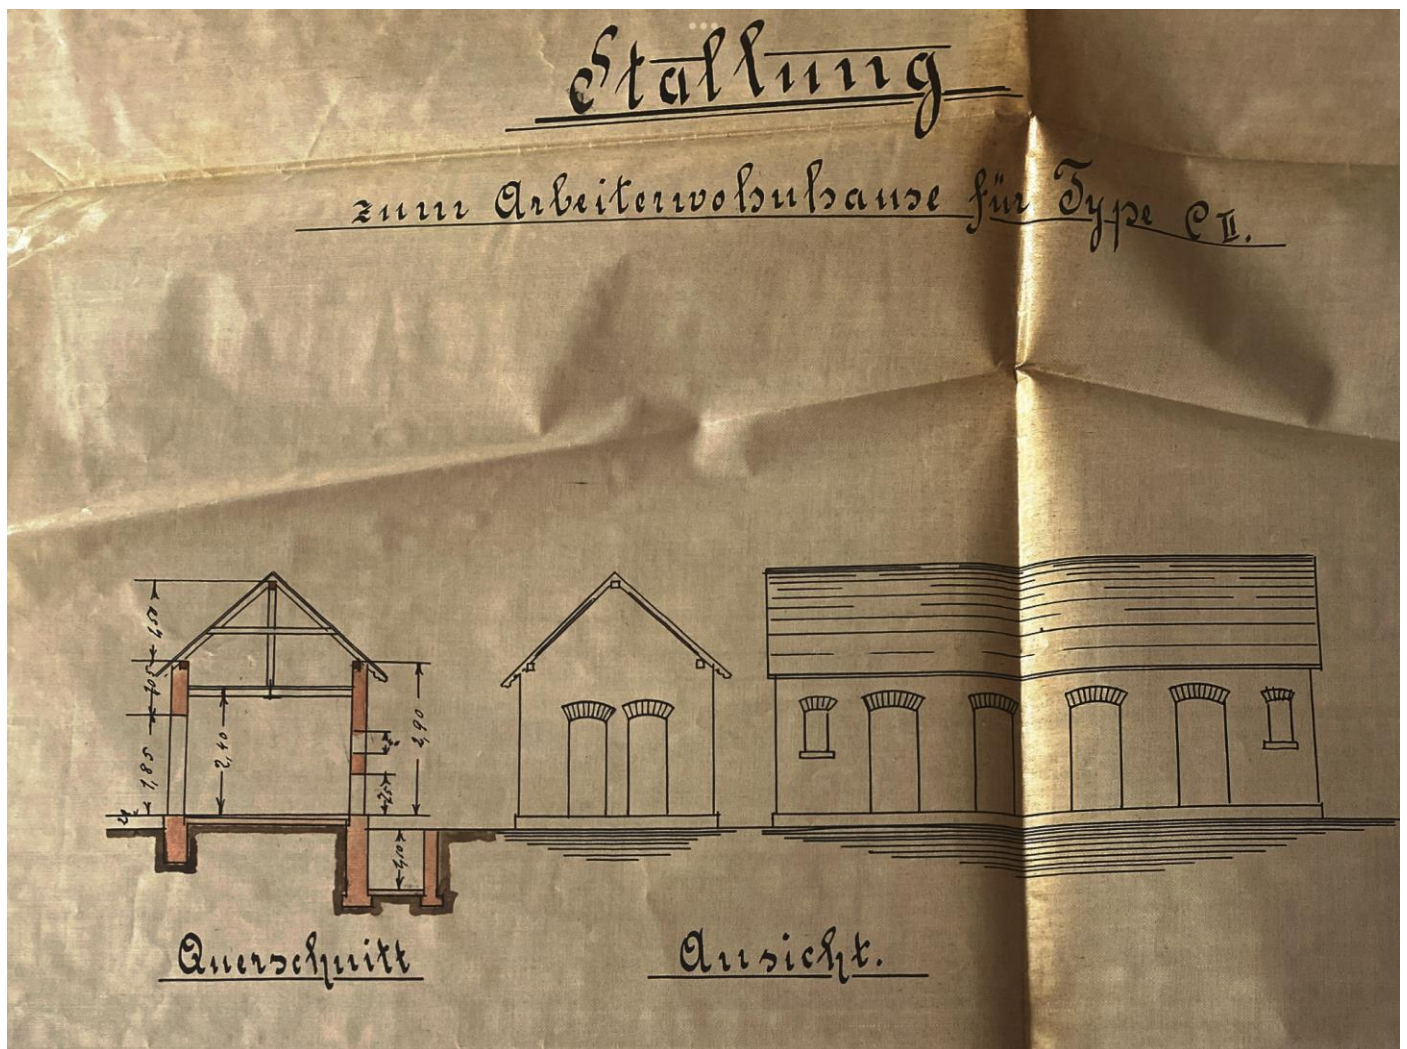 Stallung
zum Arbeiterwohnhause für Type C II.
1,50
1,05
1,85
2,40
2,90
1,10
Querschnitt
Ansicht.